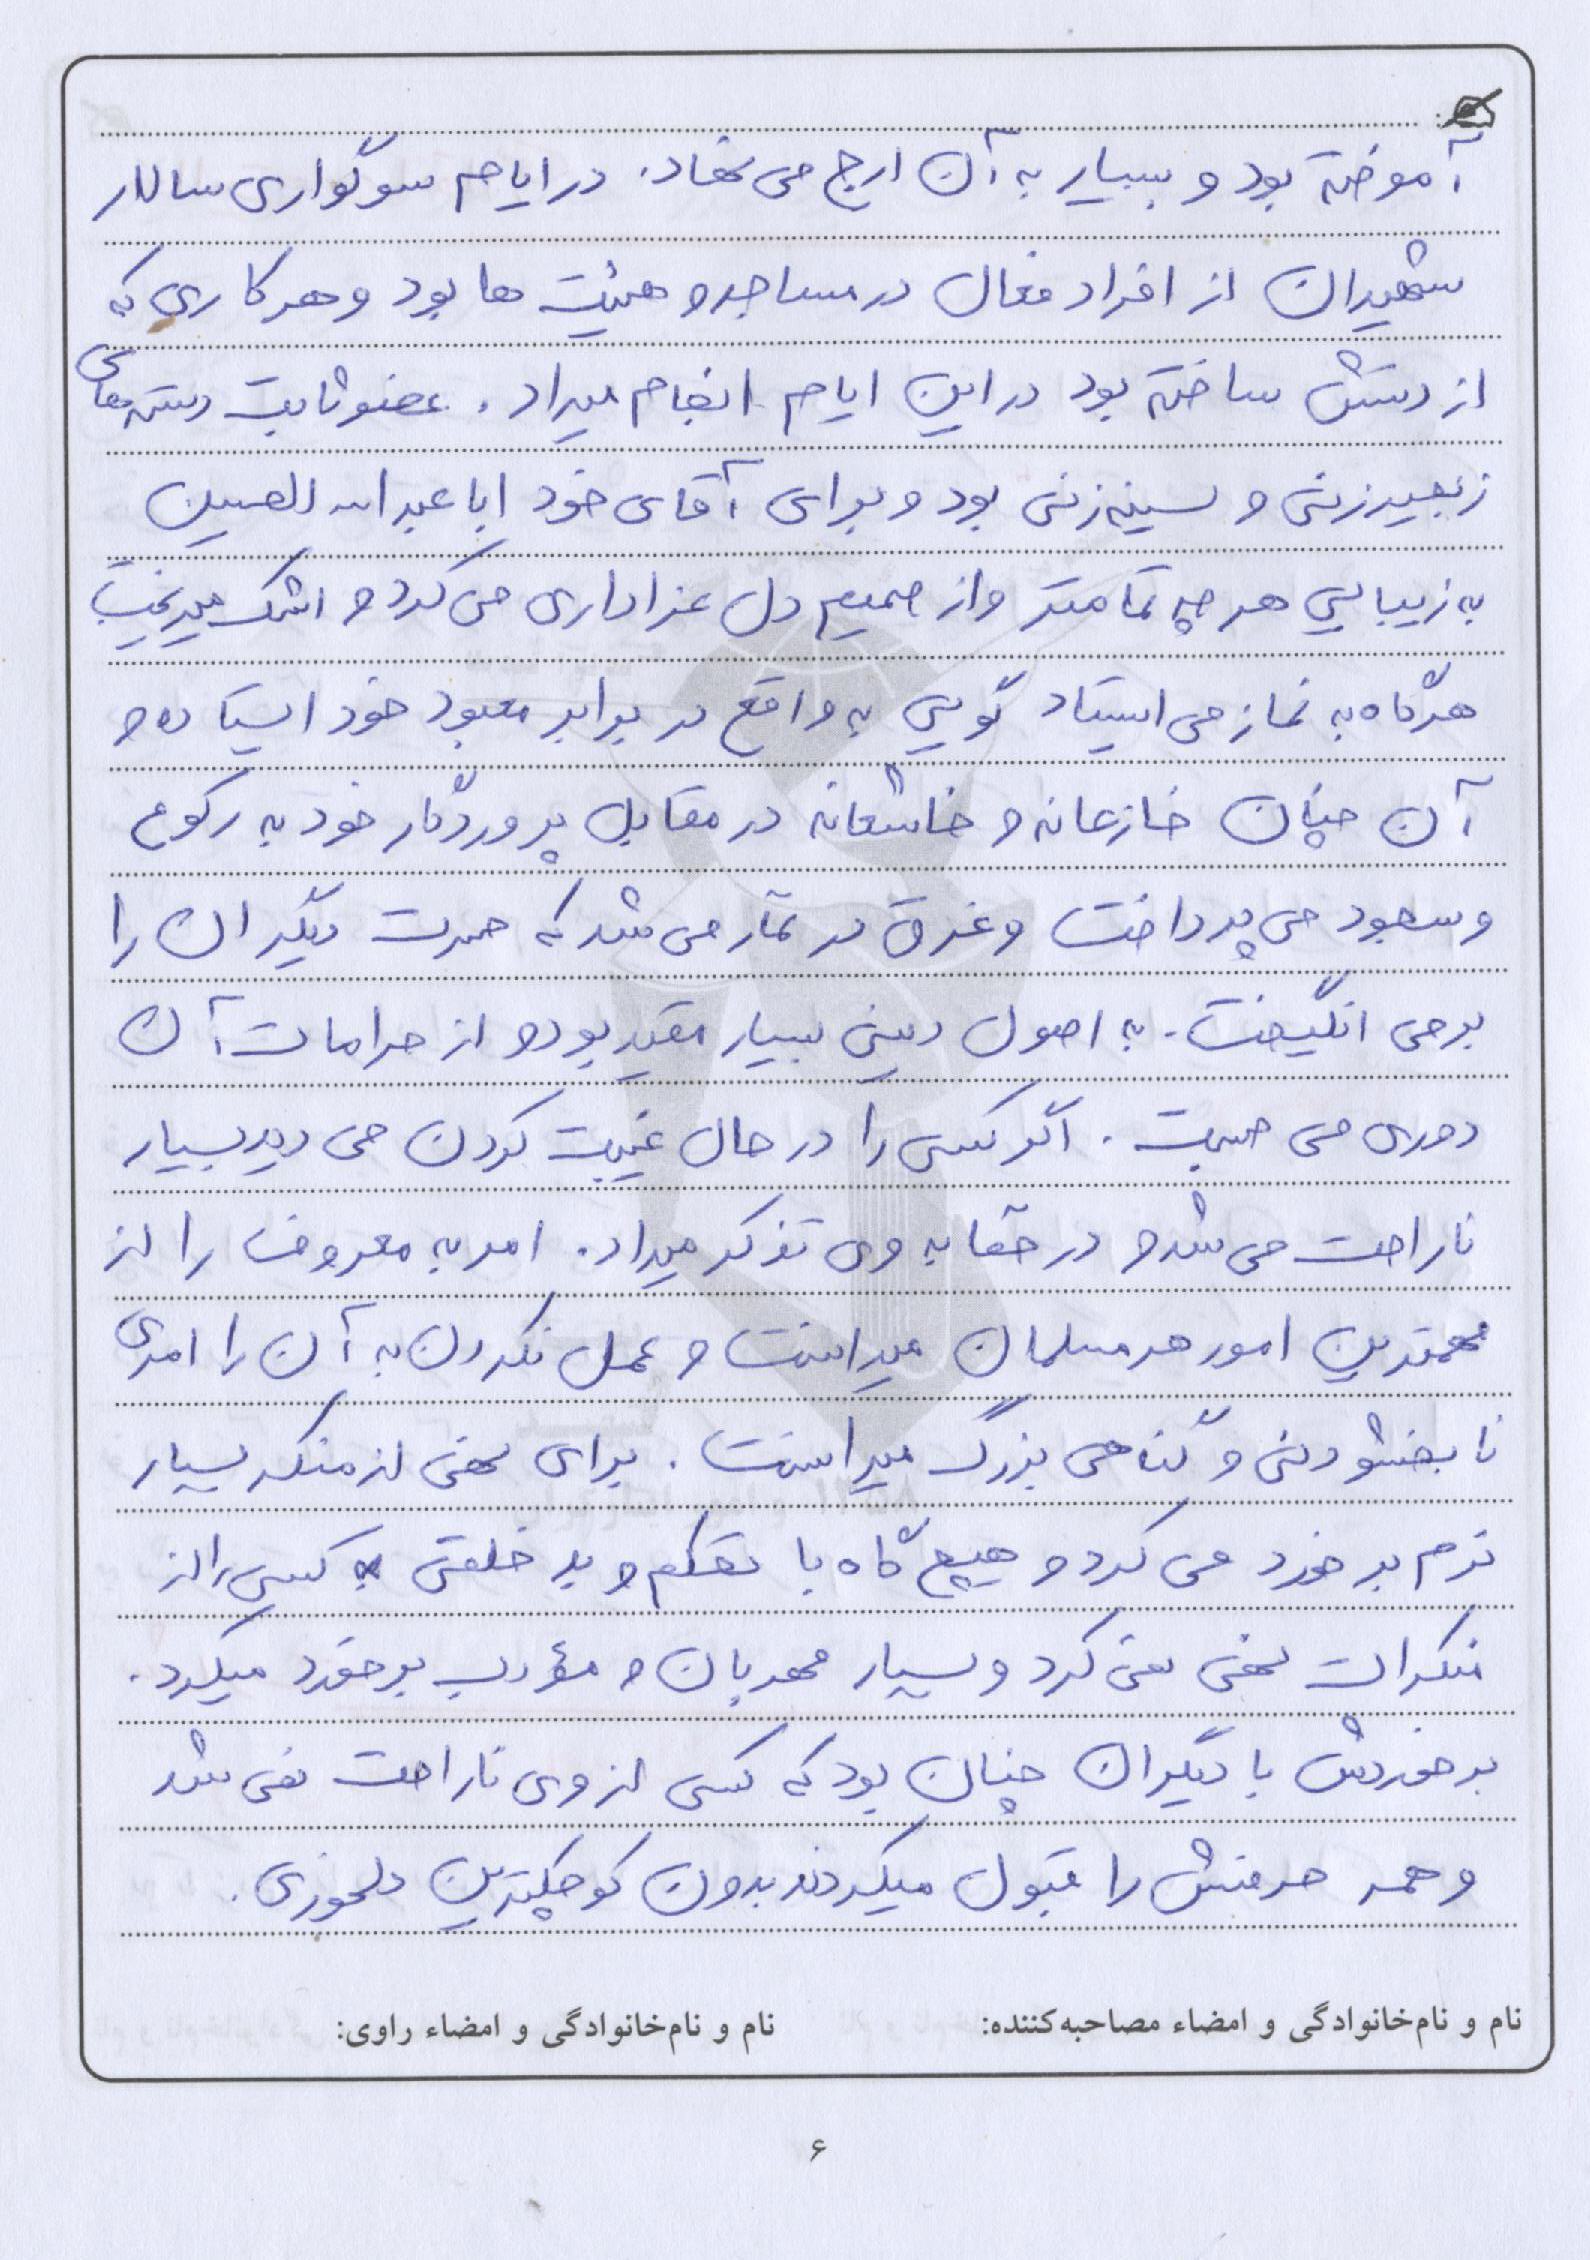 آموخته بود و بسیار به آن ارج می نهاد. در ایام سوگواری سالار
شهیدان از افراد فعال در مساجد و هیئت ها بود و هر کاری که
از دستش ساخته بود در این ایام انجام میداد. عضو ثابت دسته های
زنجیرزنی و سینه زنی بود و برای آقای خود ابا عبدالله الحسین
به زیبایی هر چه تمامتر و از صمیم دل عزاداری می کرد و اشک میریخت
هرگاه به نماز می ایستاد گویی به واقع در برابر معبود خود ایستاده و
آن چنان خازعانه و خاشعانه در مقابل پروردگار خود به رکوع
و سجود می پرداخت و غرق در نماز می شد که حیرت دیگران را
بر می انگیخت. به اصول دینی بسیار مقید بود و از حرامات آن
دوری می جست. اگر کسی را در حال غیبت کردن می دید بسیار
ناراحت می شد و در خفا به وی تذکر میداد. امر به معروف را از
مهمترین امور هر مسلمان میدانست و عمل نکردن به آن را امری
نابخشودنی و گناهی بزرگ میدانست. برای نهی از منکر بسیار
نرم برخورد می کرد و هیچ گاه با تحکم و بد خلقی کسی را از
منکرات نهی نمی کرد و بسیار مهربان و مؤدب برخورد میکرد.
برخوردش با دیگران چنان بود که کسی از وی ناراحت نمی شد
و همه حرفش را قبول میکردند بدون کوچکترین دلخوری.
نام و نام‌خانوادگی و امضاء مصاحبه‌کننده: نام و نام‌خانوادگی و امضاء راوی:
۶